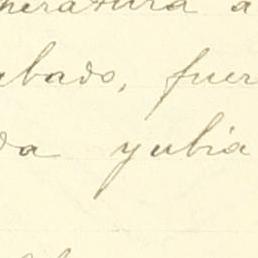 peratura a
abado, fuer
da yubia